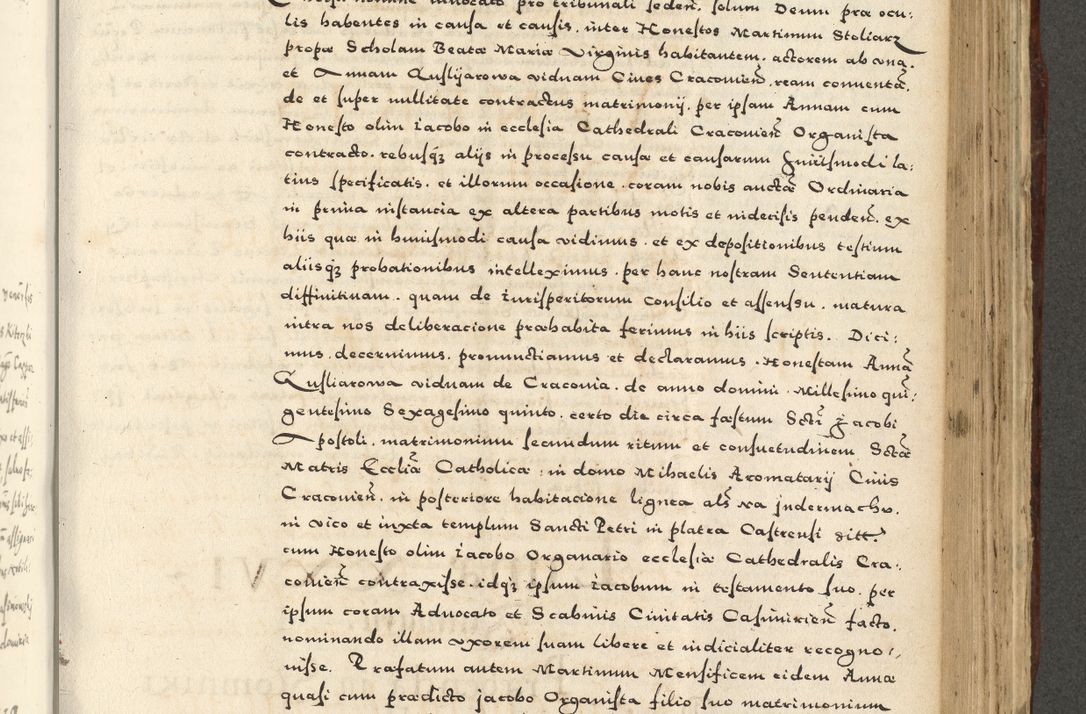 nomine invocato pro tribunali seden. solum Deum præ ocu:
lis habentes in causa et causis inter Honestos Martinum Stoliarz
prope Scholam Beatæ Mariæ Virginis habitantem. actorem ab una.
et Annam Quslijarowa viduam Cives Cracovien. ream conventã.
de et super nullitate contractus matrimonij. per ipsam Annam cum
Honesto olim Iacobo in ecclesia Cathedrali Cracovien Organista
contracto. rebusq; alijs in processu causæ et causarum huiusmodi la:
tius specificatis. et illorum occasione. coram nobis auctã Ordinaria
in prima instancia ex altera partibus motis et indecisis penden. ex
hiis quæ in huiusmodi causa vidimus. et ex depositionibus testium
aliisq; probationibus intelleximus. per hanc nostram Sententiam
diffinitivam. quam de Iurisperitorum consilio et assensu. matura
intra nos deliberacione præhabita ferimus in hiis scriptis. Dici:
mus. decernimus. pronunctiamus et declaramus. Honestam Annã
Qusliarowa viduam de Cracovia. de anno domini. Millesimo qui:
gentesimo Sexagesimo quinto. certo die circa fæstum Scti Jacobi
Apostoli. matrimonium secundum ritum et consuetudinem Sctæ
Matris Eccliæ Catholicæ. in domo Mihaelis Aromatarij Civis
Cracovien. in posteriore habitacione lignea als na jndermachu.
in vico et iuxta templum Sancti Petri in platea Castrensi sitt.
cum Honesto olim Iacobo Organario ecclesiæ Cathedralis Cra:
covien contraxisse. idq; ipsum Iacobum in testamento suo. per
ipsum coram Advocato et Scabinis Civitatis Casimirien facto.
nominando illam uxorem suam libere et iudicialiter recogno:
uisse. Præfatum autem Martinum Mensificem eidem Annæ
quasi cum prædicto jacobo Organista filio suo matrimonium